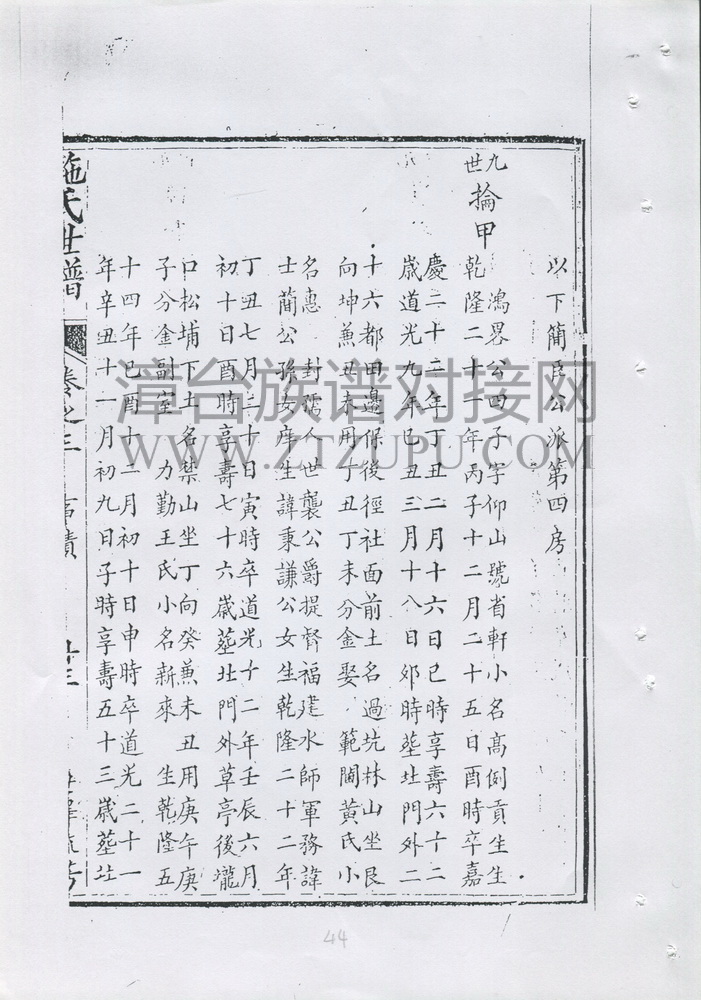 以下簡臣公派第四房
九世
掄甲
鴻畧公四子字仰山號省軒小名高例貢生生
乾隆二十一年丙子十二月二十五日酉時卒嘉
慶二十二年丁丑二月十六日巳時享壽六十二
歲道光九年己丑三月十八日夘時塟北門外二
十六都田邊保後徑社面前土名過坑林山坐艮
向坤兼丑未用丁丑丁未分金娶 範閫黃氏小
名惠 封孺人世襲公爵提督福建水師軍務諱
士簡公孫女庠生諱秉謙公女生乾隆二十二年
丁丑七月二十日寅時卒道光十二年壬辰六月
初十日酉時享壽七十六歲塟北門外草亭後壠
口松埔下土名禁山坐丁向癸兼未丑用庚午庚
子分金副室 力勤王氏小名新來 生乾隆五
十四年己酉十二月初十日申時卒道光二十一
年辛丑十一月初九日子時享壽五十三歲塟北
施氏世譜 卷之三 事蹟 廿三
漳台族谱对接网
WWW.ZTZUPU.COM
44